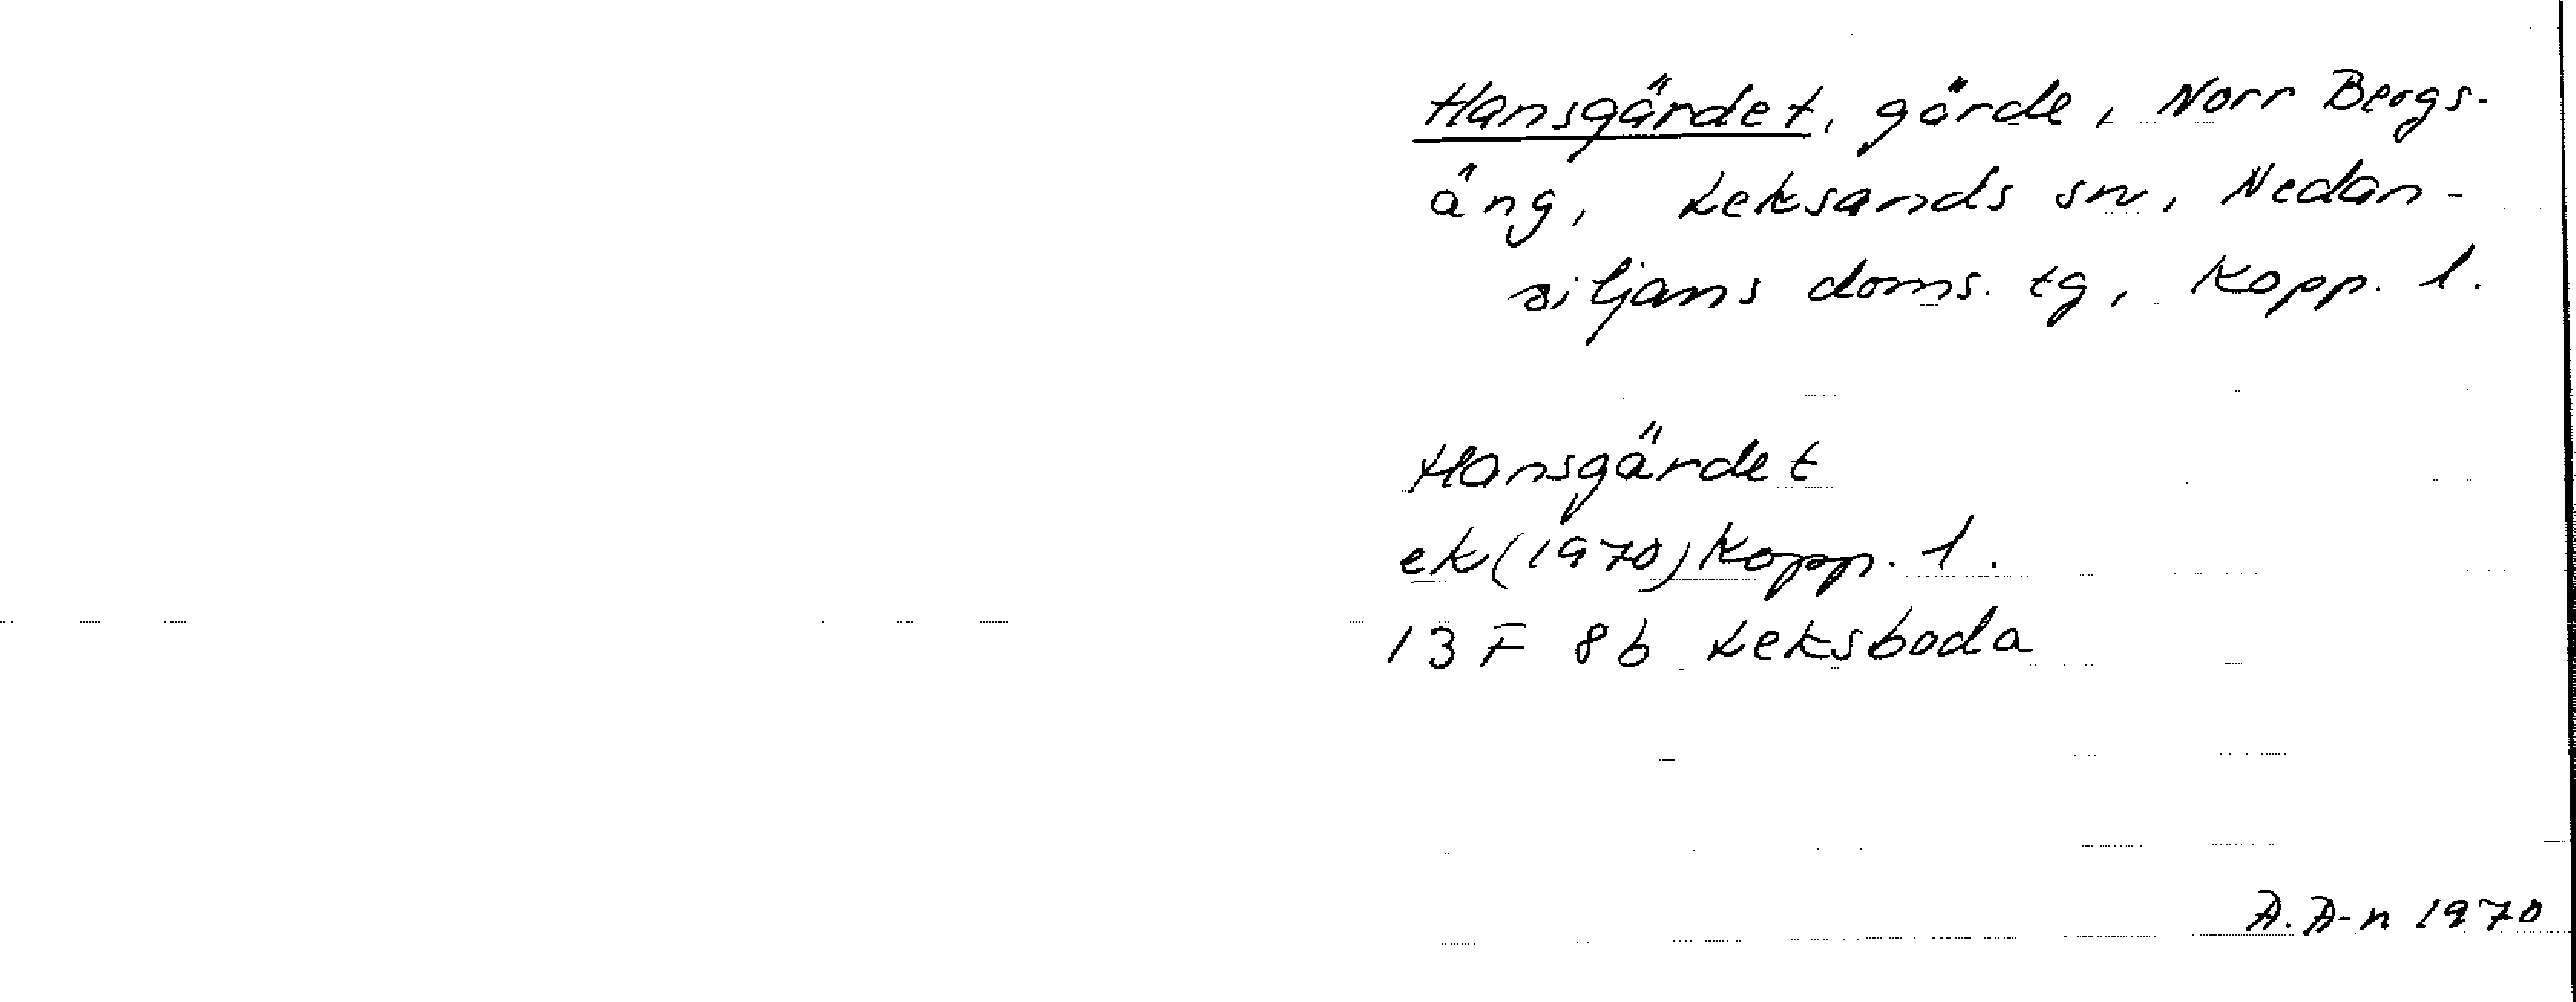 Hansgärdet, gärde, Norr Bergs-
äng, Leksands sn, Nedan-
siljans doms. tg, Kopp. l.
Hansgärdet
ek (1970) Kopp. l.
13 F 8b Leksboda
A. A-n 1970